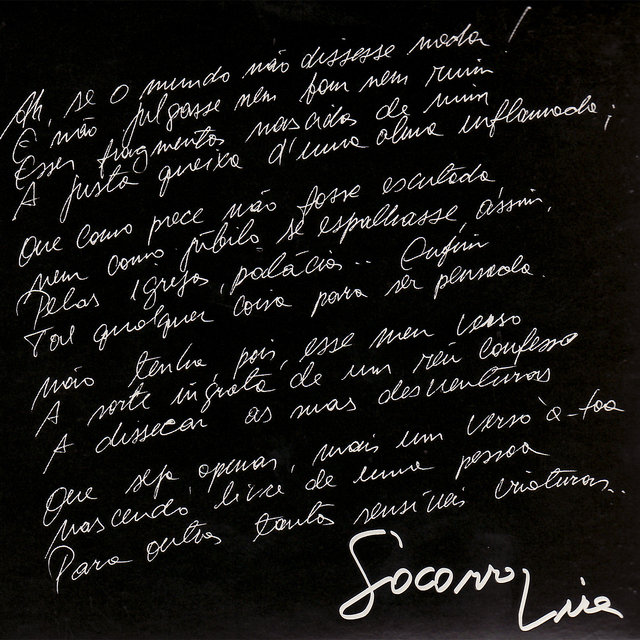 Ah, se o mundo não dissesse nada!
E não julgasse nem bom nem ruim
Esses fragmentos nascidos de mim
A justa queixa d'uma alma inflamada;
Que como prece não fosse escutada
nem como júbilo se espalhasse, assim,
Pelas igrejas, palácios.. Enfim
Tal qualquer coisa para ser pensada.
não tenha, pois, esse meu verso
A sorte ingrata de um réu confesso
A dissecar as suas desventuras
Que seja, apenas, mais um verso à-toa
nascendo livre de uma pessoa
Para outras tantas sensíveis criaturas..
Socorro Lira